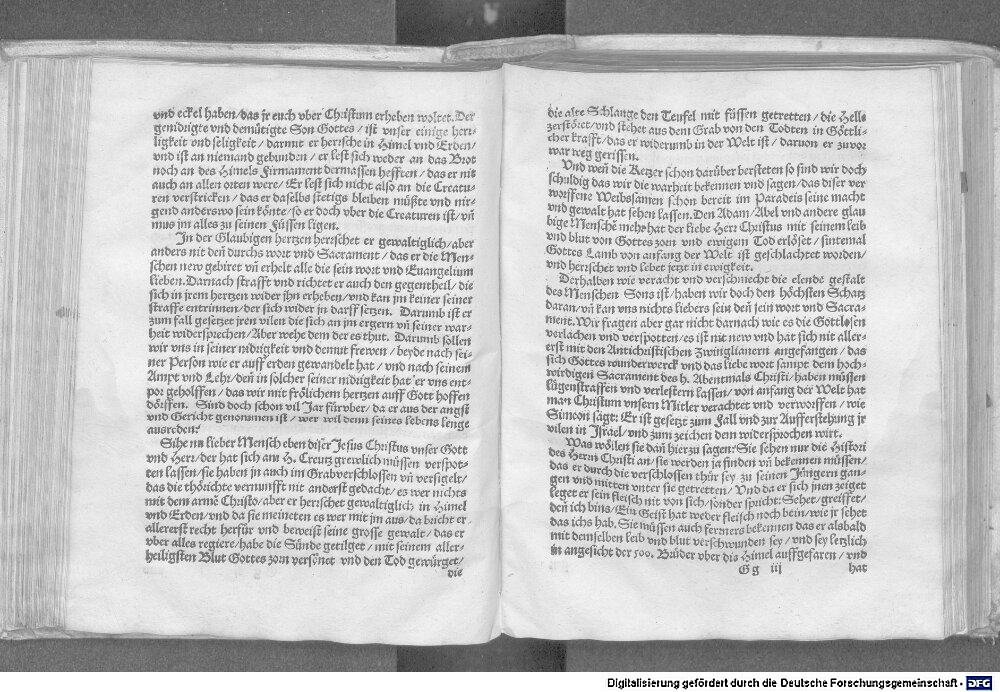 vnd eckel haben/das jr euch vber Christum erheben woltet. Der
genidrigte vnd demütigte Son Gottes/ist vnser einige herr-
ligkeit vnd seligkeit/darmit er herrsche in Himel vnd Erden/
vnd ist an niemand gebunden/er lest sich weder an das Brot
noch an des Himels Firmament dermassen hefften/das er nit
auch an allen orten were/Er lest sich nicht also an die Creatu-
ren verstricken/das er daselbs stetigs bleiben müßte vnd nir-
gend anderswo sein könte/so er doch vber die Creaturen ist/vñ
mus jm alles zu seinen Füssen ligen.
In der Glaubigen hertzen herrschet er gewaltiglich/aber
anders nit deñ durchs wort vnd Sacrament/das er die Men-
schen new gebiret vñ erhelt alle die sein wort vnd Euangelium
lieben. Darnach strafft vnd richtet er auch den gegentheil/die
sich in jrem hertzen wider jhn erheben/vnd kan jm keiner seiner
straffe entrinnen/der sich wider jn darff setzen. Darumb ist er
zum fall gesetzet jren vilen die sich an jm ergern vñ seiner war-
heit widersprechen/Aber wehe dem der es thut. Darumb sollen
wir vns in seiner nidrigkeit vnd demut frewen/beyde nach sei-
ner Person wie er auff erden gewandelt hat/vnd nach seinem
Ampt vnd Lehr/deñ in solcher seiner nidrigkeit hat er vns ent-
por geholffen/das wir mit frölichem hertzen auff Gott hoffen
dörffen. Sind doch schon vil Jar fürvber/da er aus der angst
vnd Gericht genomen ist/wer wil denn seines lebens lenge
ausreden?
Sihe nu lieber Mensch eben diser Jesus Christus vnser Gott
vnd Herr/der hat sich am H. Creutz grewlich müssen verspot-
ten lassen/sie haben jn auch im Grab verschlossen vñ versigelt/
das die thörichte vernunfft nit anderst gedacht/es wer nichts
mit dem armē Christo/aber er herrschet gewaltiglich in Himel
vnd Erden/vnd da sie meineten es wer mit jm aus/da bricht er
allererst recht herfür vnd beweist seine grosse gewalt/das er
vber alles regiere/habe die Sünde getilget/mit seinem aller-
heiligsten Blut Gottes zorn versönet vnd den Tod gewürget/
die
die alte Schlange den Teufel mit füssen getretten/die Helle
zerstöret/vnd stehet aus dem Grab von den Todten in Göttli-
cher krafft/das er widerumb in der Welt ist/daruon er zuvor
war weg gerissen.
Vnd weñ die Ketzer schon darüber bersteten so sind wir doch
schuldig das wir die warheit bekennen vnd sagen/das diser ver
worffene Weibsamen schon bereit im Paradeis seine macht
vnd gewalt hat sehen lassen. Den Adam/Abel vnd andere glau
bige Menschē mehr hat der liebe Herr Christus mit seinem leib
vnd blut von Gottes zorn vnd ewigem Tod erlöset/sintemal
Gottes Lamb von anfang der Welt ist geschlachtet worden/
vnd herrschet vnd lebet jetzt in ewigkeit.
Derhalben wie veracht vnd verschmecht die elende gestalt
des Menschen Sons ist/haben wir doch den höchsten Schatz
daran/vñ kan vns nichts liebers sein deñ sein wort vnd Sacra-
ment. Wir fragen aber gar nicht darnach wie es die Gottlosen
verlachen vnd verspotten/es ist nit new vnd hat sich nit aller-
erst mit den Antichristischen Zwinglianern angefangen/das
sich Gottes wunderwerck vnd das liebe wort sampt dem hoch-
wirdigen Sacrament des h. Abentmals Christi/haben müssen
lügenstraffen vnd verlestern lassen/von anfang der Welt hat
man Christum vnsern Mitler verachtet vnd verworffen/wie
Simeon sagt: Er ist gesetzt zum Fall vnd zur Aufferstehung jr
vilen in Israel/vnd zum zeichen dem widersprochen wirt.
Was wöllen sie dañ hierzu sagen? Sie sehen nur die Histori
des Herrn Christi an/sie werden ja finden vñ bekennen müssen/
das er durch die verschlossen thür sey zu seinen Jüngern gan-
gen vnd mitten vnter sie getretten/Vnd da er sich jnen zeiget
leget er sein fleisch nit von sich/sonder spricht: Sehet/greiffet/
deñ ich bins/Ein Geist hat weder fleisch noch bein/wie jr sehet
das ichs hab. Sie müssen auch ferners bekennen das er alsbald
mit demselben leib vnd blut verschwunden sey/vnd sey letzlich
in angesicht der 500. Brüder vber die Himel auffgefaren/vnd
Gg iij hat
Digitalisierung gefördert durch die Deutsche Forschungsgemeinschaft - DFG